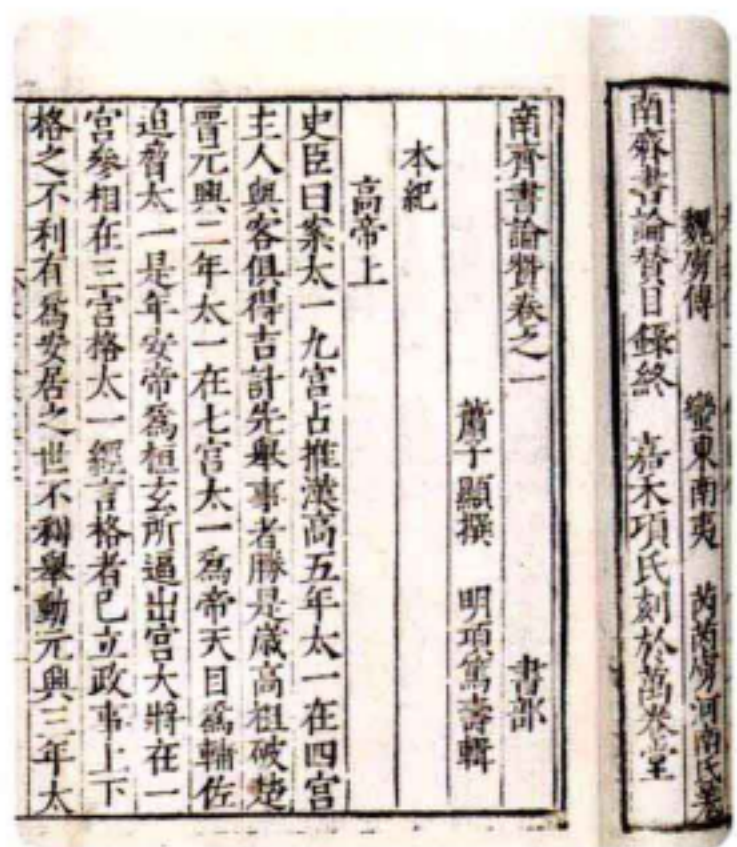 魏虜傳 蠻東南夷 芮芮虜河南氐羌
南齊書論贊目錄終 嘉禾項氏刻於萬卷堂
南齊書論贊卷之一 書部
蕭子顯撰 明項篤壽輯
本紀
高帝上
史臣曰案太一九宮占推漢高五年太一在四宮
主人與客俱得吉計先舉事者勝是歲高祖破楚
晉元興二年太一在七宮太一爲帝天目爲輔佐
迫脅太一是年安帝爲桓玄所逼出宮大將在一
宮參相在三宮格太一經言格者已立政事上下
格之不利有爲安居之世不利舉動元興三年太